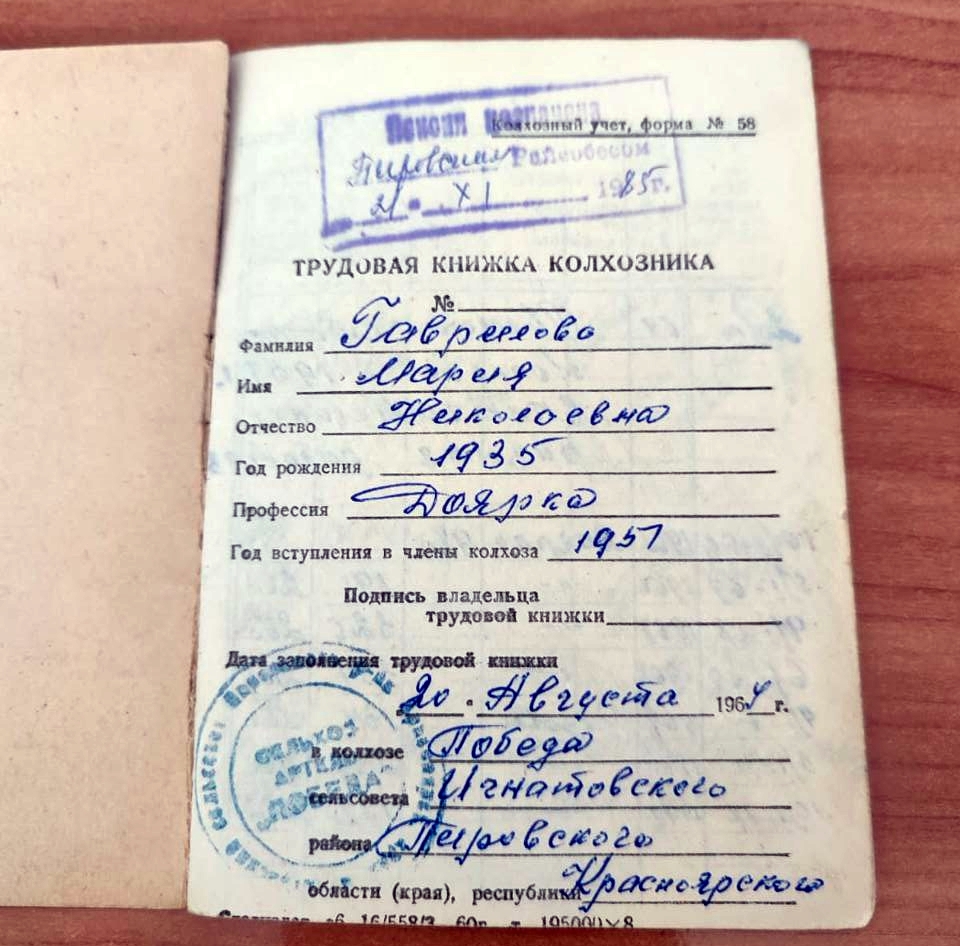 Пенсия назначена
Колхозный учет, форма № 58
Пировским Райсобесом
21 " XI 1985г.
ТРУДОВАЯ КНИЖКА КОЛХОЗНИКА
№
Фамилия Гаврилова
Имя Мария
Отчество Николаевна
Год рождения 1935
Профессия Доярка
Год вступления в члены колхоза 1951
Подпись владельца
трудовой книжки
Дата заполнения трудовой книжки
20 " Августа 1964 г.
в колхозе Победа
сельсовета Игнатовского
района Пировского
области (края), республики Красноярского
СЕЛЬХОЗ
АРТЕЛЬ
"ПОБЕДА"
16/558/3 60г. т. 195000×8